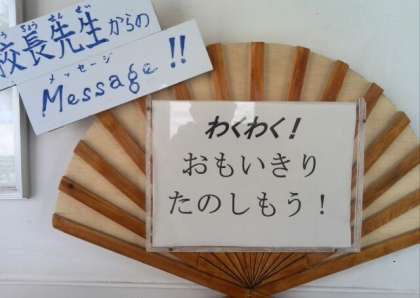 校長先生からの
こうちょうせんせい
メッセージ
Message!!
わくわく！
おもいきり
たのしもう！